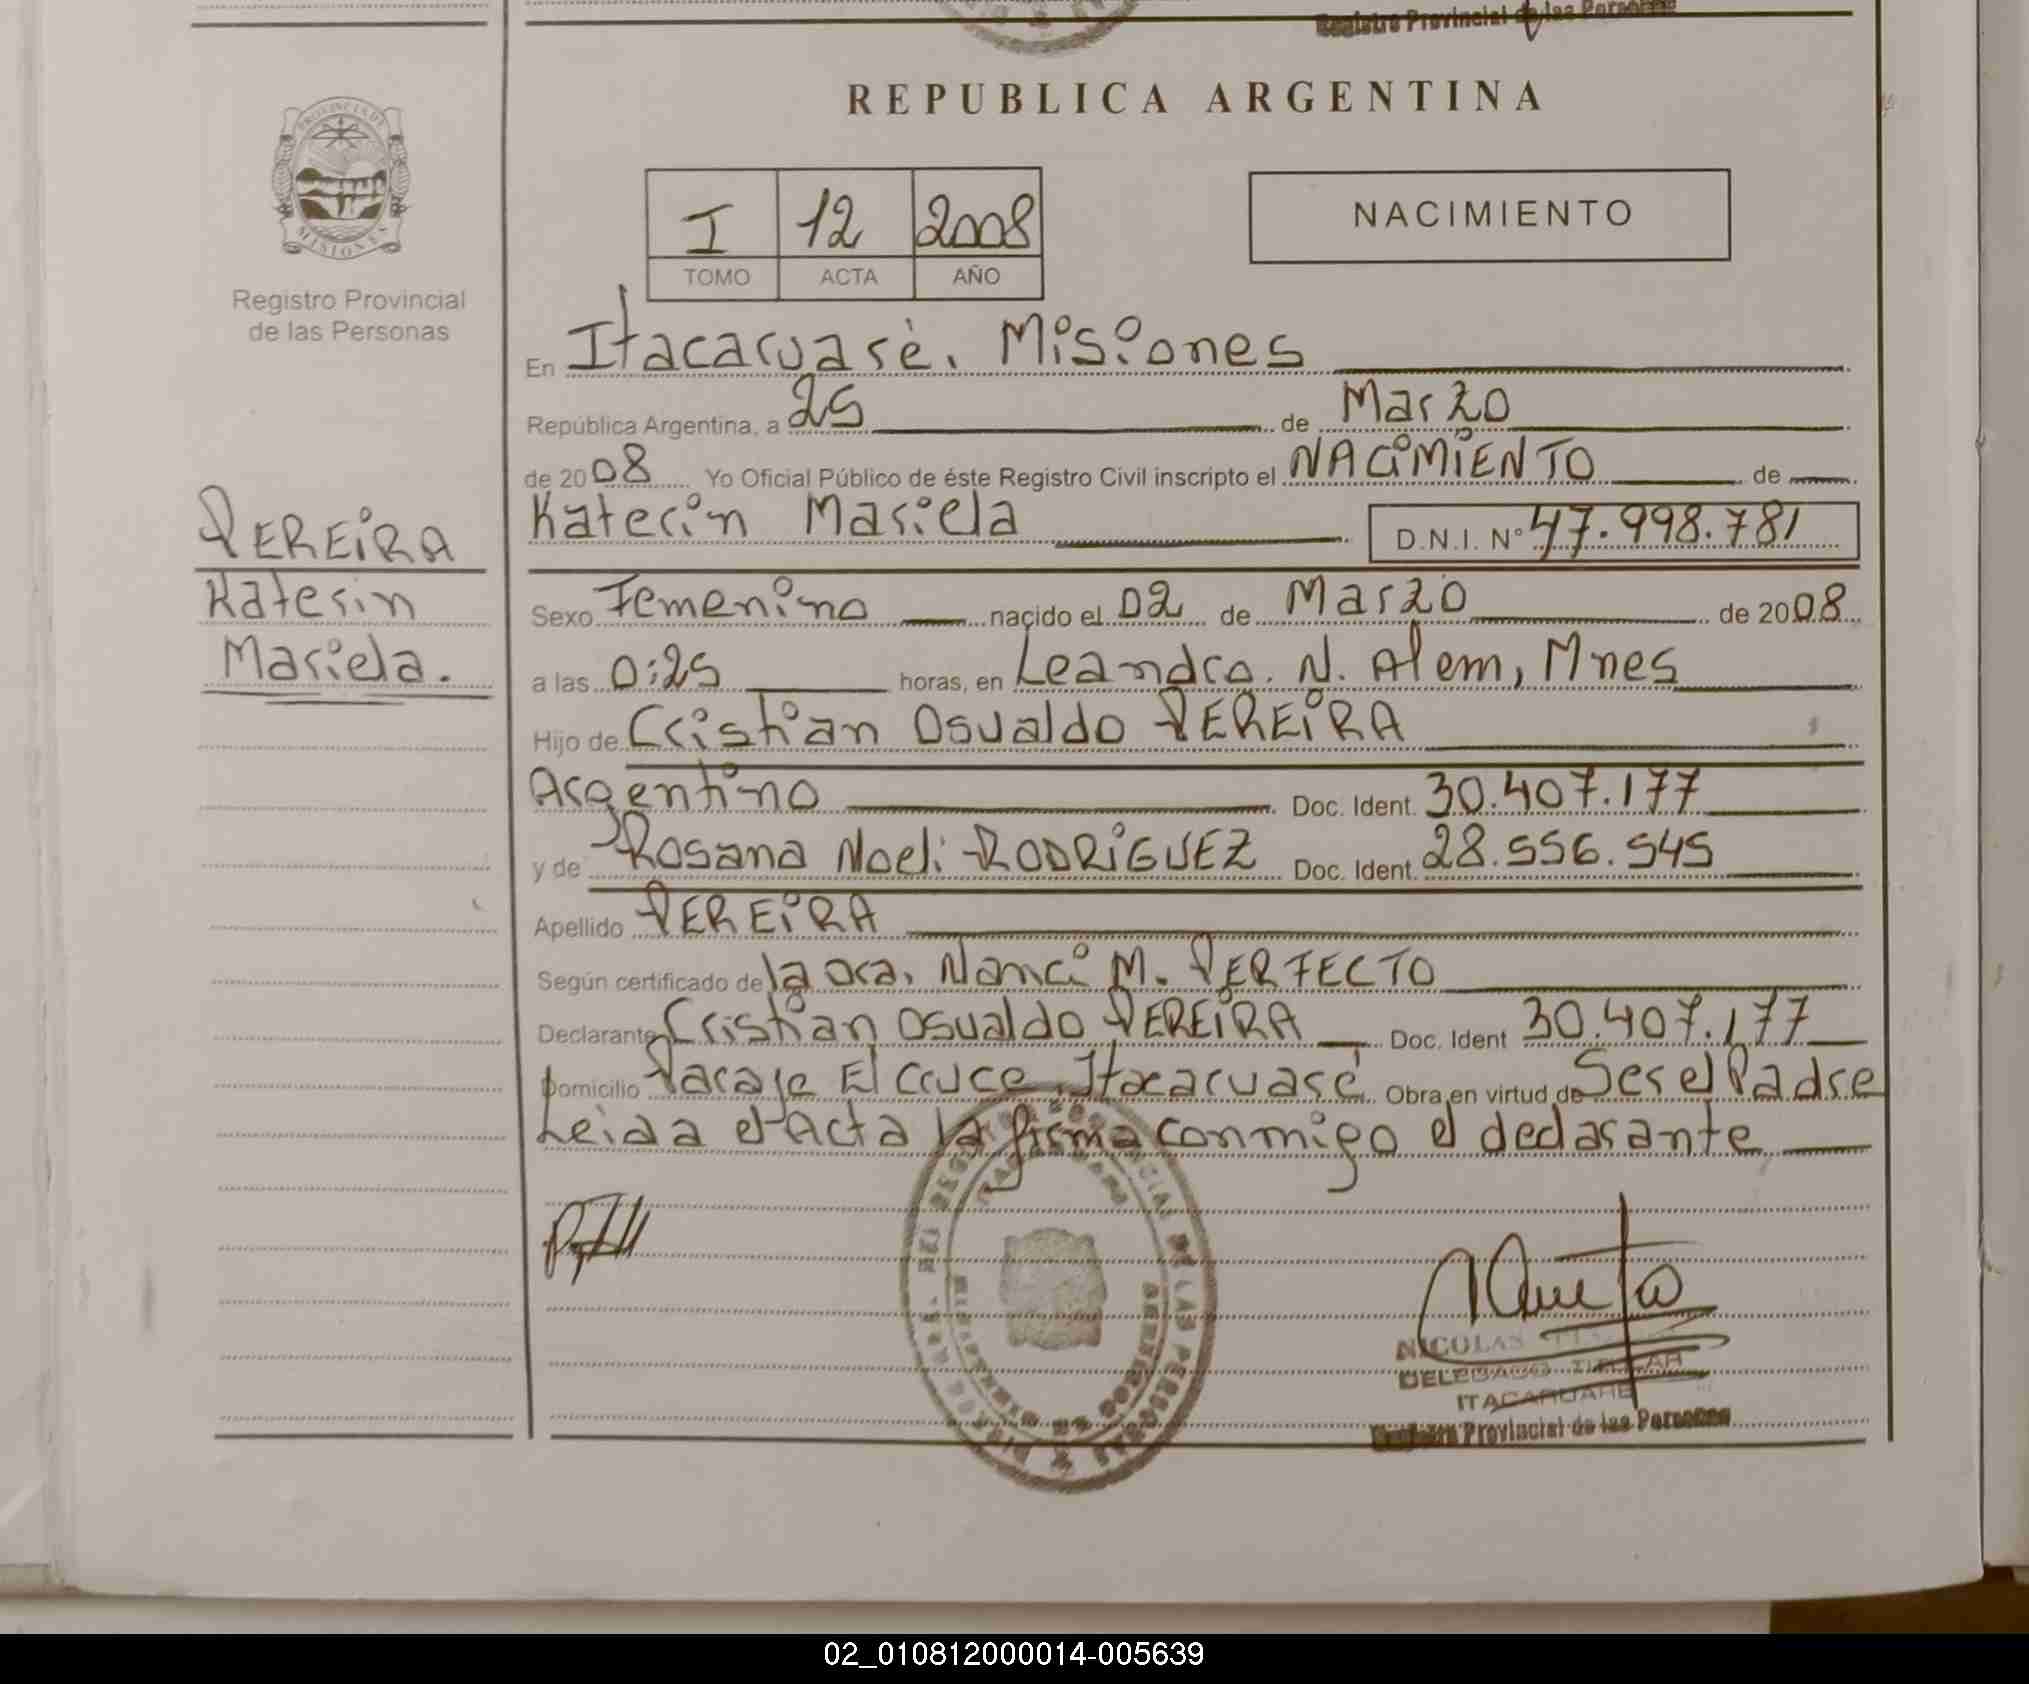 Registro Provincial de las Personas
REPUBLICA ARGENTINA
PROVINCIA DE MISIONES
Registro Provincial
de las Personas
I 12 2008
TOMO ACTA AÑO
NACIMIENTO
En Itacaruaré, Misiones
República Argentina, a 25 de Marzo
de 2008 Yo Oficial Público de éste Registro Civil inscripto el NACIMIENTO de
Katerin Mariela D.N.I. Nº 47.998.781
PEREIRA
Katerin
Mariela.
Sexo Femenino nacido el 02 de Marzo de 2008
a las 0:25 horas, en Leandro. N. Alem, Mnes
Hijo de Cristian Osvaldo PEREIRA
Argentino Doc. Ident. 30.407.177
y de Rosana Noeli RODRIGUEZ Doc. Ident. 28.556.545
Apellido PEREIRA
Según certificado de la Dra. Nanci M. PERFECTO
Declarante Cristian Osvaldo PEREIRA Doc. Ident 30.407.177
Domicilio Paraje El Cruce, Itacaruaré Obra en virtud de Ser el Padre
Leida el Acta la firma conmigo el declarante
NICOLAS
DELEGADO TITULAR
ITACARUARE
Registro Provincial de las Personas
02_010812000014-005639